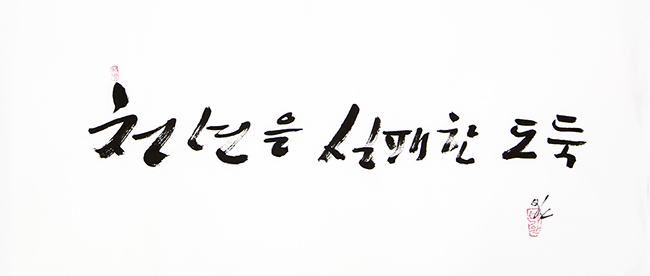 천년을 실패한 도둑